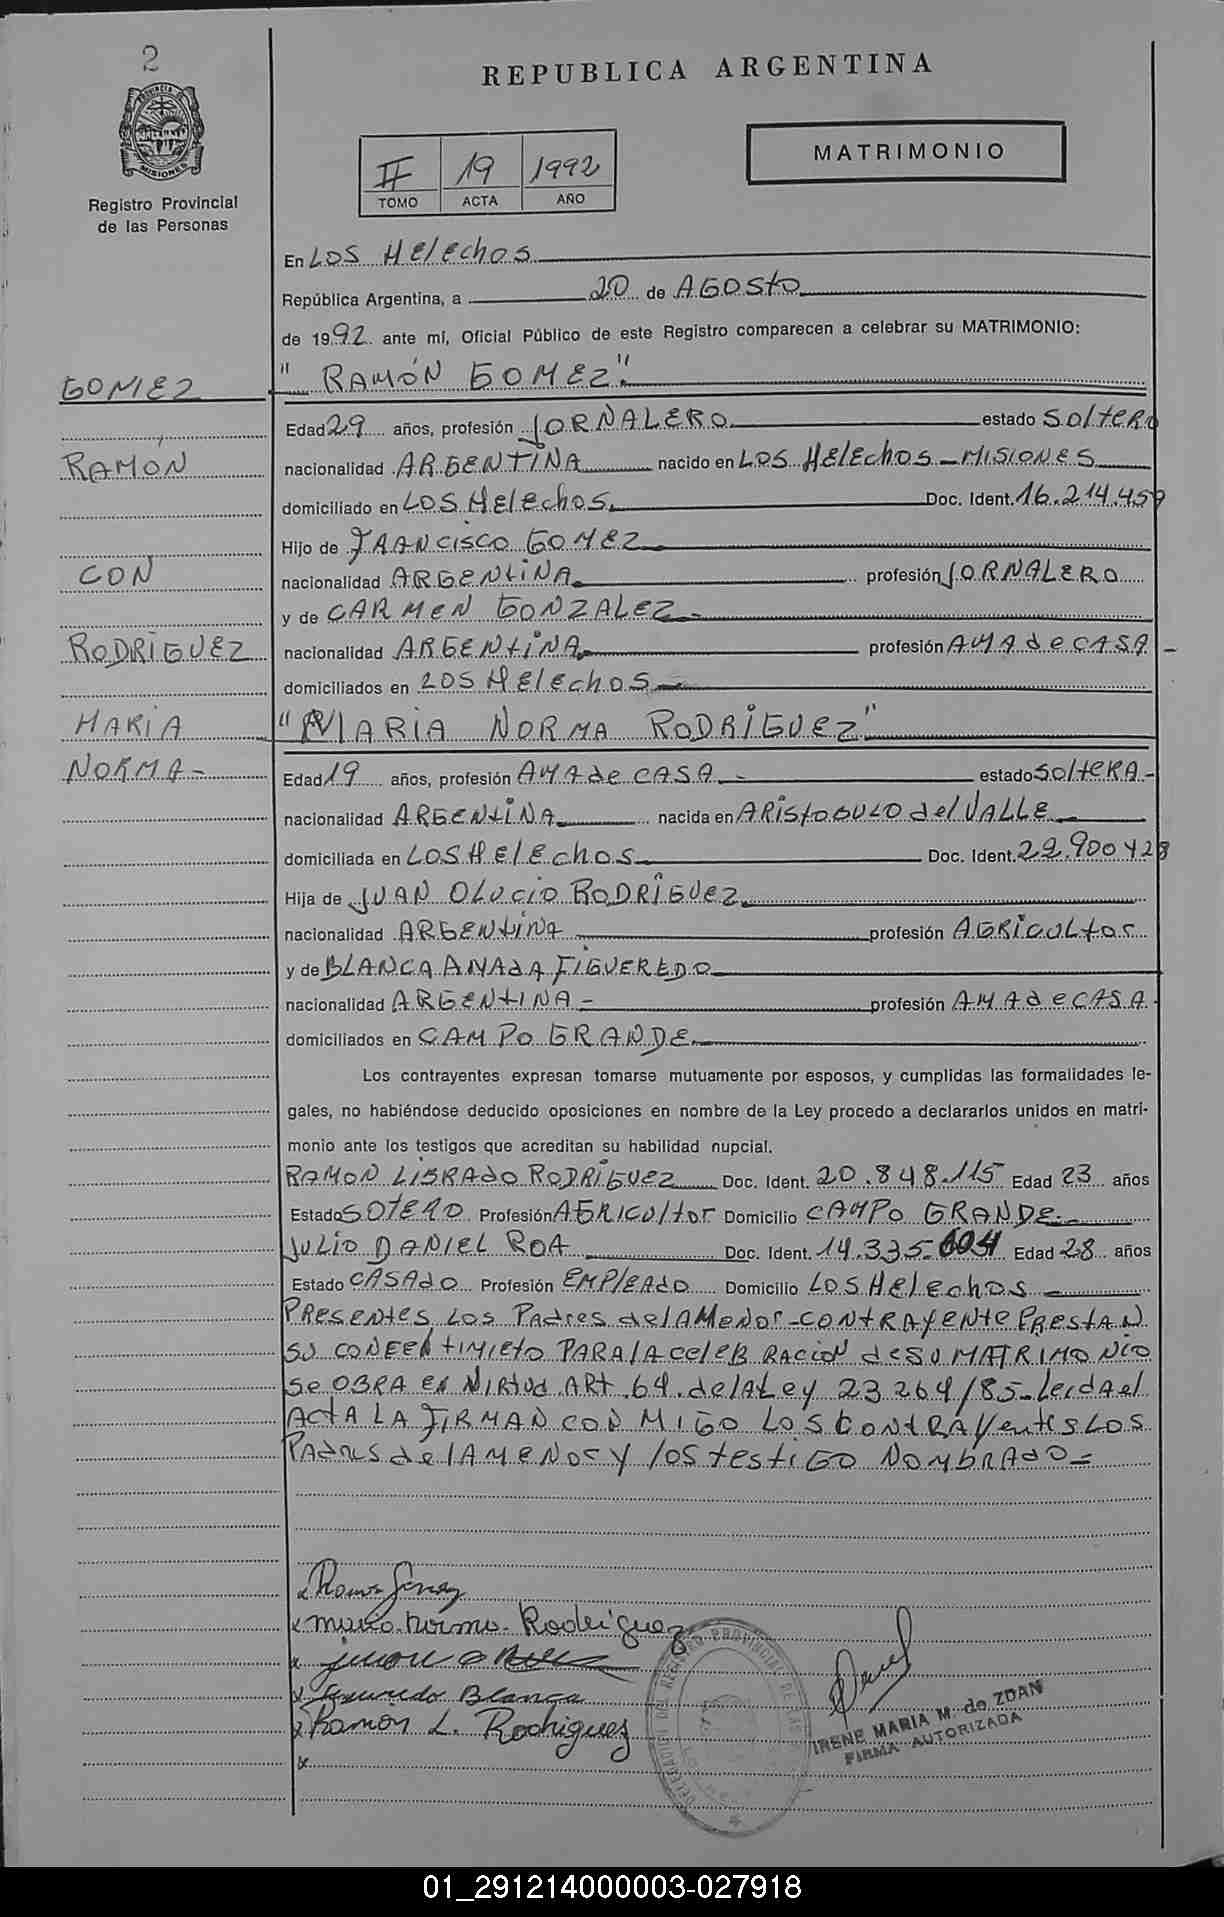 2
PROVINCIA DE
MISIONES
Registro Provincial
de las Personas
REPUBLICA ARGENTINA
II 19 1992
TOMO ACTA AÑO
MATRIMONIO
En LOS HElEchos
República Argentina, a 20 de AGOSto
de 1992 ante mí, Oficial Público de este Registro comparecen a celebrar su MATRIMONIO:
GOMEZ
" RAMÓN GOMEZ"
Edad 29 años, profesión JORNALERO estado SOltERO
RAMÓN
nacionalidad ARGENTINA nacido en LOS HElEchos - MISIONES
domiciliado en LOS HElEchos. Doc. Ident. 16.214.459
Hijo de FRANCISCO GOMEZ
CON
nacionalidad ARGENtINA profesión JORNALERO
y de CARMEN GONZALEZ -
RODRIGUEZ
nacionalidad ARGENtINA profesión AMA de CASA -
domiciliados en LOS HElEchos -
MARIA
"MARIA NORMA RODRIGUEZ"
NORMA -
Edad 19 años, profesión AMA de CASA - estado SOltERA -
nacionalidad ARGENtINA nacida en ARIStOBULO del VALLE
domiciliada en LOS HElEchos Doc. Ident. 22.900428
Hija de JUAN OLUCIO RODRIGUEZ
nacionalidad ARGENtINA profesión AGRICULtor
y de BLANCA AMAdA FIGUEREDO
nacionalidad ARGENtINA - profesión AMA de CASA -
domiciliados en CAMPO GRANDE
Los contrayentes expresan tomarse mutuamente por esposos, y cumplidas las formalidades le-
gales, no habiéndose deducido oposiciones en nombre de la Ley procedo a declararlos unidos en matri-
monio ante los testigos que acreditan su habilidad nupcial.
RAMON LIBRAdO RODRIGUEZ Doc. Ident. 20.848.115 Edad 23 años
Estado SOTERO Profesión AGRICUltor Domicilio CAMPO GRANDE
JULIO DANIEL ROA Doc. Ident. 14.335.604 Edad 28 años
Estado CASADO Profesión EMPlEAdO Domicilio LOS HElEchos
PRESENtES LOS PAdres de lA MENOr - CONtRAYENtE PREStAN
SU CONEENtIMIEtO PARA lA CElEBRACION dE SU MATRIMONIO
SE OBRA EN VIRtUd ARt. 64. de lA LEy 23264/85 - leidA el
ACtA LA FIRMAN CONMIGO LOS CONtRAYentES LOS
PAdRES de lA MENOr Y los testiGO NOMBRAdO =
x Ramon Gomez
x maria norma Rodriguez
x
x Figueredo Blanca
x Ramón L. Rodriguez
x
DELEGACION DEL REGISTRO PROVINCIAL DE LAS
IRENE MARIA M. de ZDAN
FIRMA AUTORIZADA
01_291214000003-027918